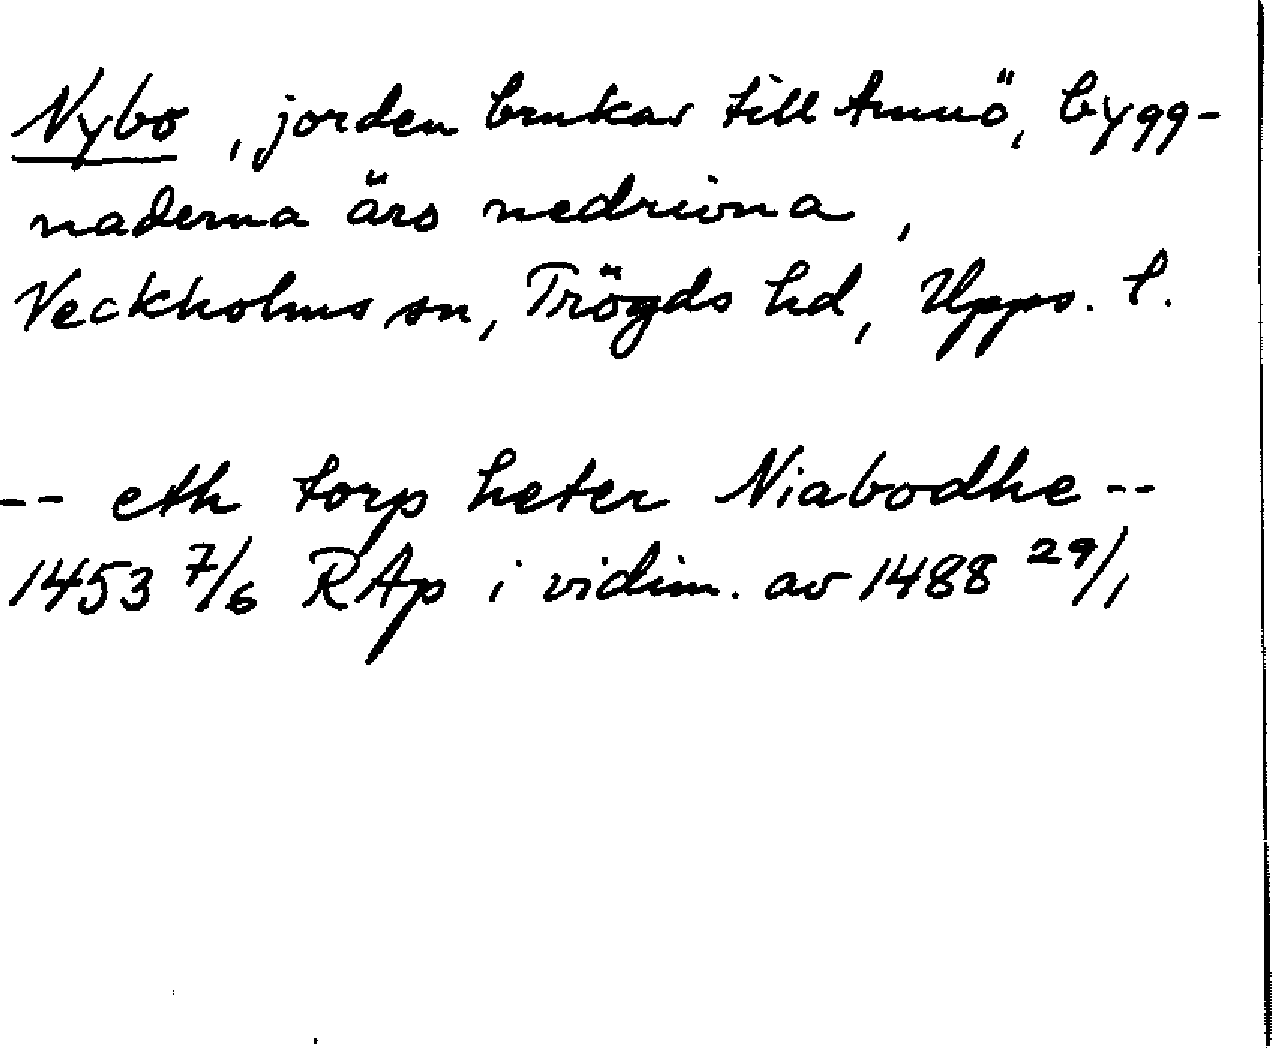 Nybo, jorden brukas till Amnö, bygg-
naderna äro nedrivna,
Veckholms sn, Trögds hd, Upps. l.
-- eth torp heter Niabodhe --
1453 7/6 RAp i vidim. av 1488 29/1